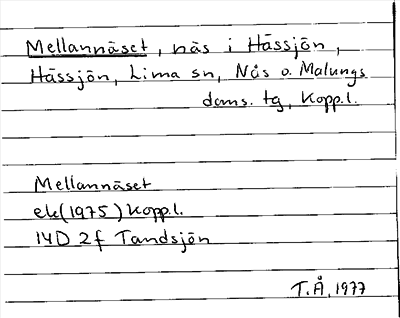 Mellannäset, näs i Hässjön,
Hässjön, Lima sn, Nås o. Malungs
doms. tg, Kopp.l.
Mellannäset
ek(1975) Kopp.l.
14D 2f Tandsjön
T.Å. 1977